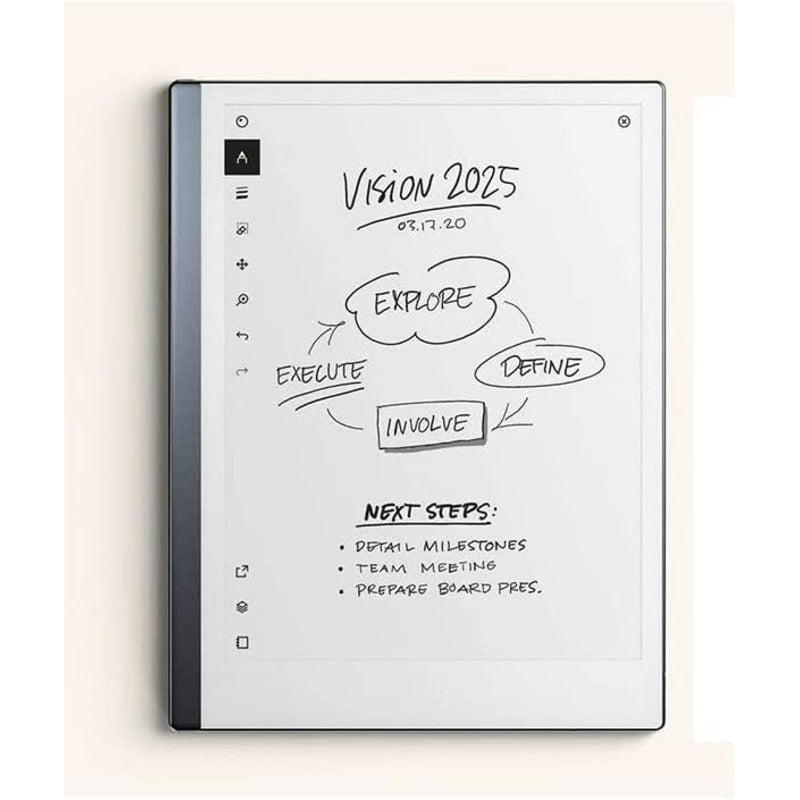 VISION 2025
03.17.20
EXPLORE
DEFINE
EXECUTE
INVOLVE
NEXT STEPS:
• DETAIL MILESTONES
• TEAM MEETING
• PREPARE BOARD PRES.